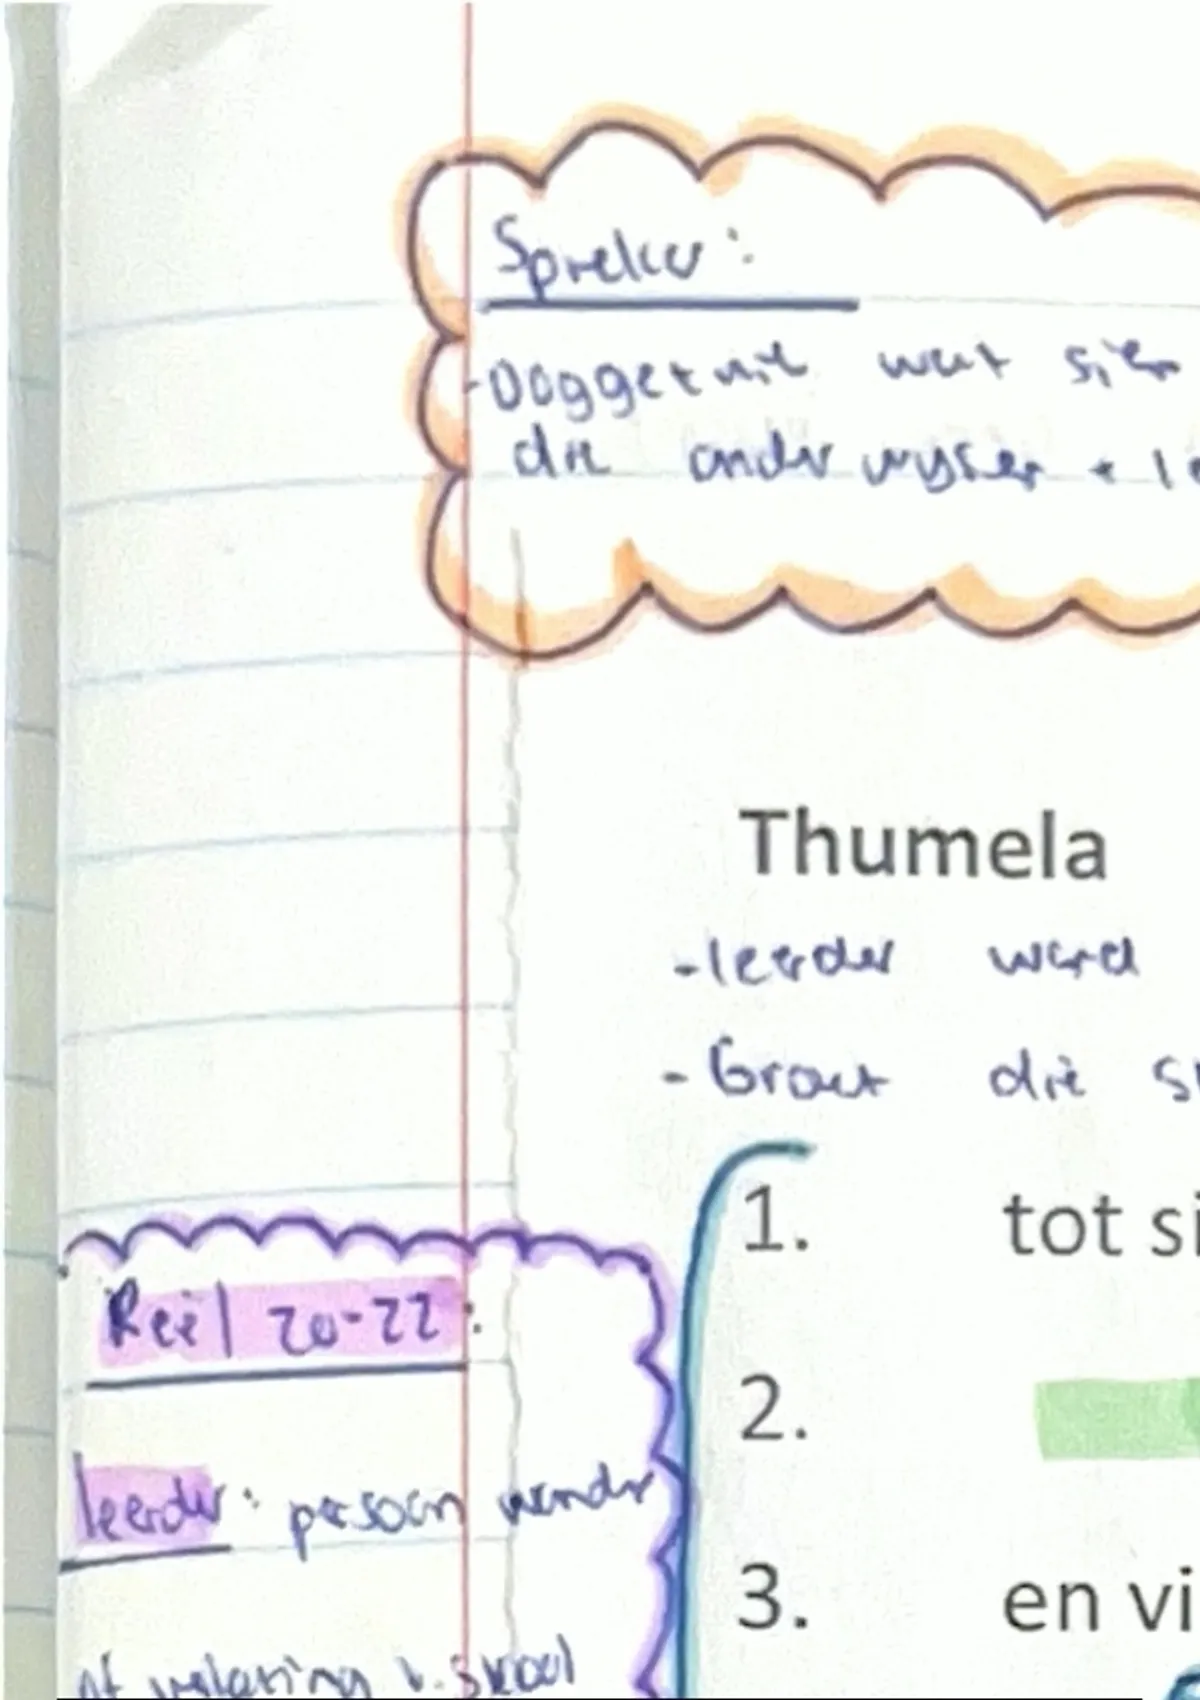 Spreker:
-Ooggetuie wat sien
die onderwyser +
Thumela
-leerder word
- Groet die
1. tot si
2.
Reël 20-22:
leerder: persoon wonder
3. en vi
skool